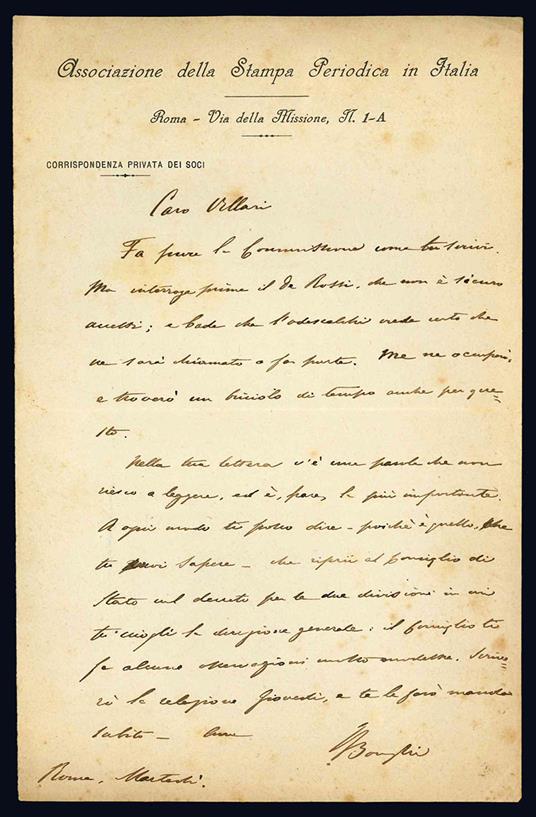 Associazione della Stampa Periodica in Italia
Roma - Via della Missione, N. 1-A
CORRISPONDENZA PRIVATA DEI SOCI
Caro Villari
Fa pure la Commissione come tu scrivi.
Ma interroga prima il De Rossi, che non è sicuro
accetti; e bada che l'Odescalchi crede certo che
ne sarà chiamato a far parte. Me ne occuperò,
e troverò un briciolo di tempo anche per que=
sto.
Nella tua lettera v'è una parola che non
riesco a leggere, ed è, pare, la più importante.
A ogni modo ti posso dire - poichè è quello, che
tu vuoi sapere - che riferii al Consiglio di
Stato sul decreto per le due divisioni in cui
tu sciogli la direzione generale: il Consiglio ti
fa alcune osservazioni molto modeste. Scrive=
rò la relazione Giovedì, e te la farò mandare
subito -
Bonghi
Roma, Martedì.